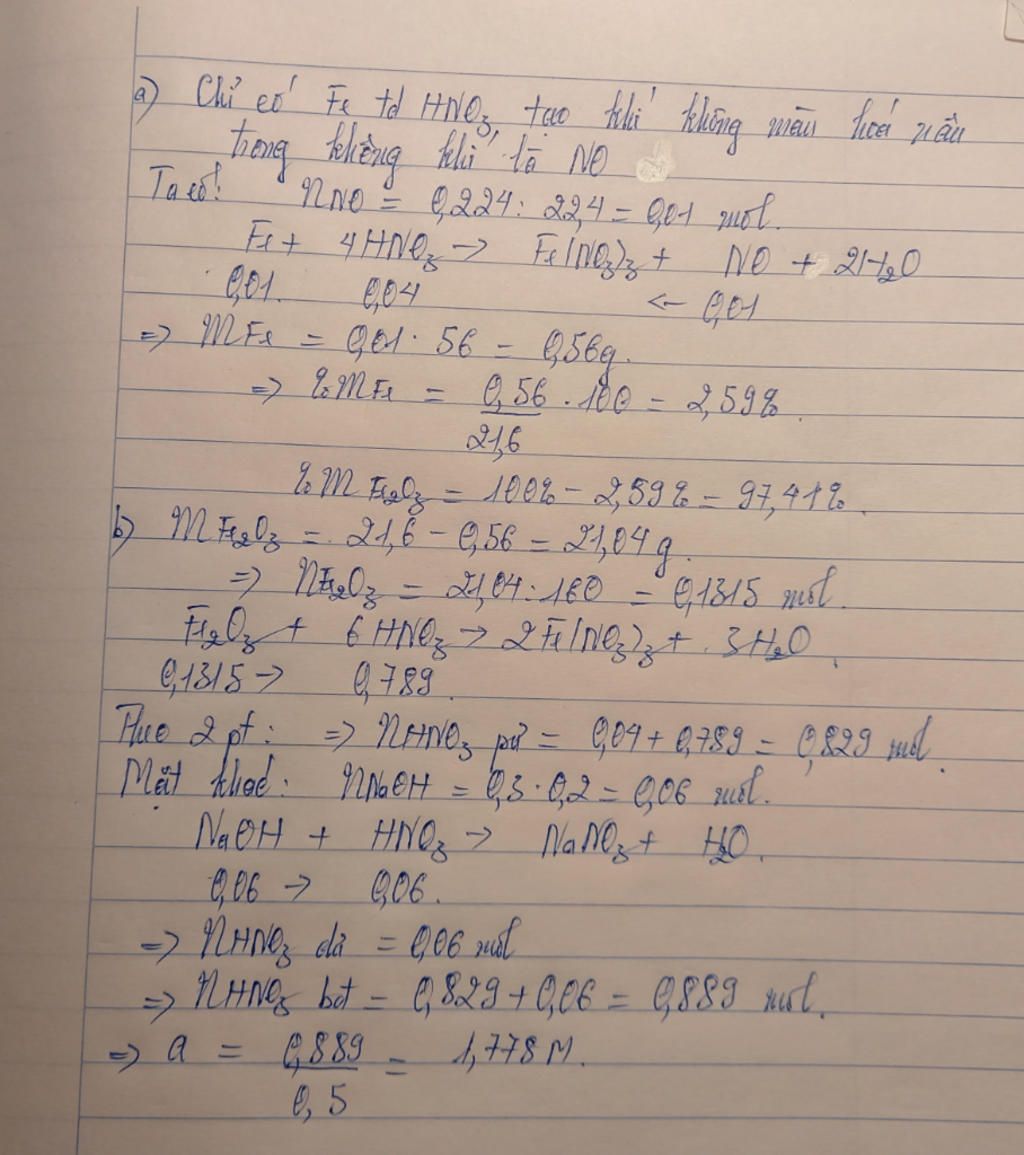 a) Chỉ có Fe td HNO₃ tạo khí không màu hoá nâu
trong không khí là NO
Ta có: nNO = 0,224 : 22,4 = 0,01 mol.
Fe + 4HNO₃ → Fe(NO₃)₃ + NO + 2H₂O
0,01. 0,04 ← 0,01
=> mFe = 0,01 · 56 = 0,56g.
=> %mFe = 0,56/21,6 · 100 = 2,59%.
%mFe₂O₃ = 100% - 2,59% = 97,41%.
b) mFe₂O₃ = 21,6 - 0,56 = 21,04g.
=> nFe₂O₃ = 21,04 : 160 = 0,1315 mol.
Fe₂O₃ + 6HNO₃ → 2Fe(NO₃)₃ + 3H₂O.
0,1315 → 0,789.
Theo 2 pt: => nHNO₃ pứ = 0,04 + 0,789 = 0,829 mol.
Mặt khác: nNaOH = 0,3 · 0,2 = 0,06 mol.
NaOH + HNO₃ → NaNO₃ + H₂O.
0,06 → 0,06.
=> nHNO₃ dư = 0,06 mol
=> nHNO₃ bđ = 0,829 + 0,06 = 0,889 mol.
=> a = 0,889/0,5 = 1,778M.